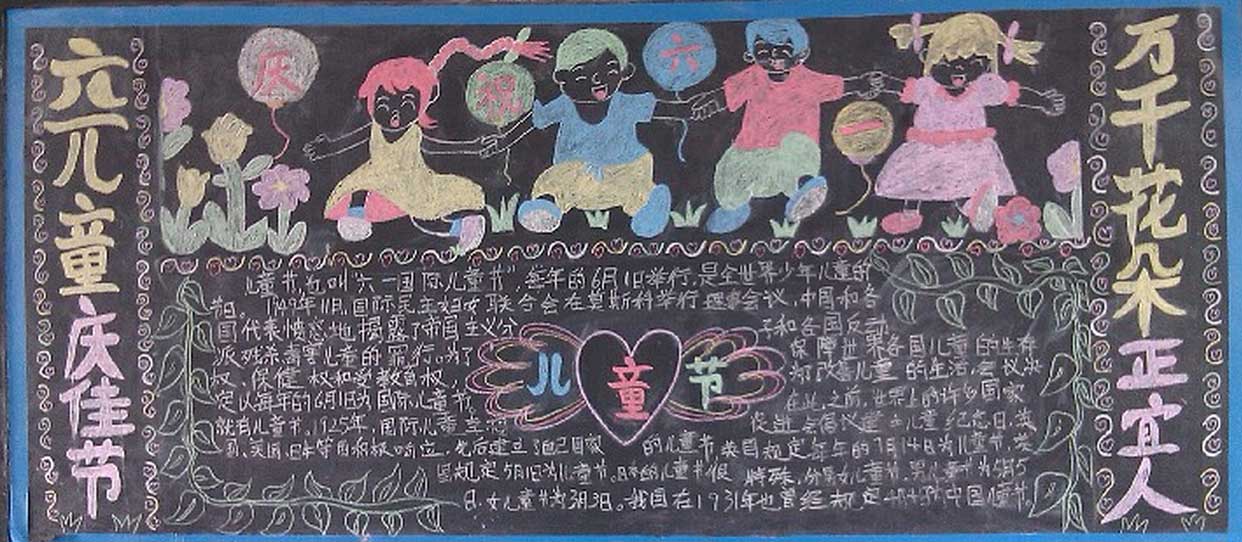 六一儿童庆佳节
庆祝六一
万千花朵正宜人
儿童节,也叫"六一国际儿童节",每年的6月1日举行,是全世界少年儿童的
节日。1949年11月,国际民主妇女联合会在莫斯科举行理事会议,中国和各
国代表愤怒地揭露了帝国主义分
子和各国反动
派残杀毒害儿童的罪行。为了
保障世界各国儿童的生存
权、保健权和受教育权,
为了改善儿童的生活,会议决
定以每年的6月1日为国际儿童节。
在此之前,世界上的许多国家
就有儿童节,1925年,国际儿童
促进会倡议建立儿童纪念日,英
国、美国、日本等国积极响应,先后建立了自己国家的儿童节,英国规定每年的7月14日为儿童节,美
国规定5月1日为儿童节。日本的儿童节很特殊,分男女儿童节,男儿童节为5月5
日,女儿童节为3月3日。我国在1931年也曾经规定4月4日为中国儿童节。
儿童节